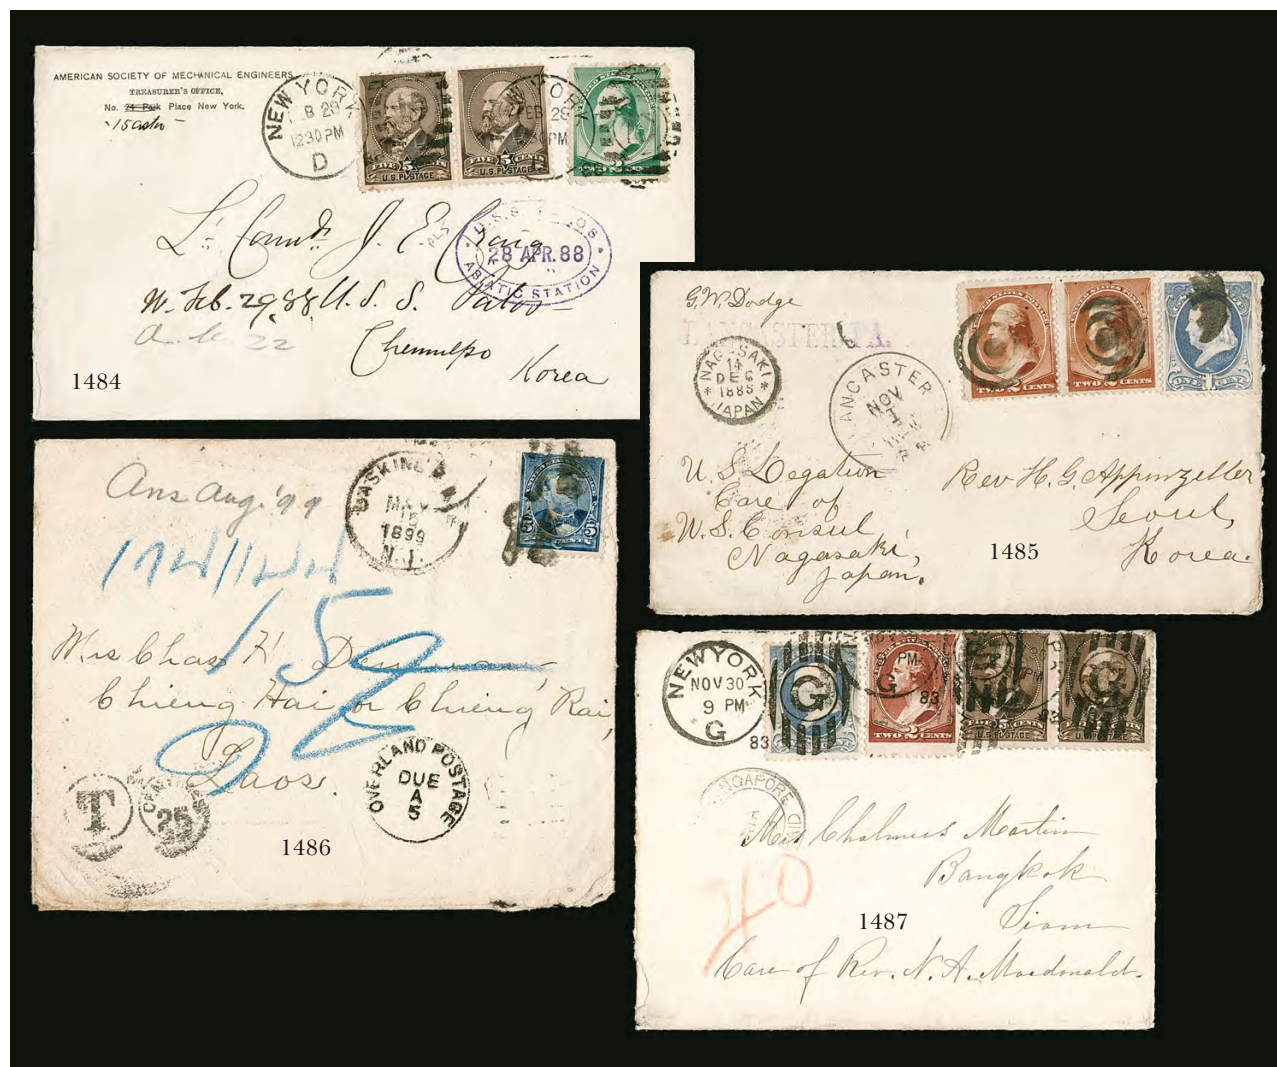 AMERICAN SOCIETY OF MECHANICAL ENGINEERS
TREASURER'S OFFICE,
No. 24 Park Place New York.
NEW YORK
B 29
12 30 PM
D
FIVE 5 CENTS
U.S. POSTAGE
FIVE 5 CENTS
U.S. POSTAGE
YORK
EB 28
PM
Lt. Comdr. J. E. Craig
U.S.S. OS
28 APR. 88
ASIATIC STATION
W. Feb. 29, 88 U. S. S. Palos
22
Chemulpo
Korea
1484
G. W. Dodge
LANCASTER, PA.
NAGASAKI
14
DEC
1885
JAPAN
LANCASTER
NOV
TWO 2 CENTS
TWO 2 CENTS
U. S. Legation
Care of
U. S. Consul
Nagasaki,
Japan.
Rev H. G. Appenzeller
Seoul,
Korea.
1485
Ans Aug. '99
MAY
1899
N.Y.
15
Mrs Chas H.
Chieng Hai or Chieng Rai,
Laos.
OVERLAND POSTAGE
DUE
A
5
T
CEN
25
1486
NEW YORK
NOV 30
9 PM
G
83
G
PM
G
83
TWO 2 CENTS
U.S. POSTAGE
U.S. POSTAGE
SINGAPORE
Mrs Chalmers Martin
Bangkok
Siam
Care of Rev. N. A. Macdonald.
40
1487